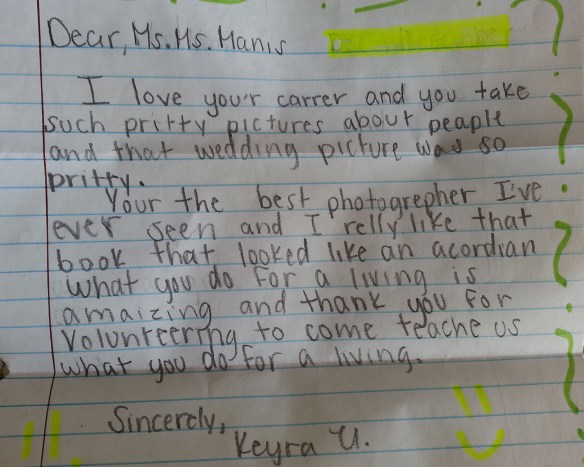 Dear, Ms.Ms. Manis
I love you'r carrer and you take
such pritty pictures about peaple
and that wedding picture was so
pritty.
Your the best photogrepher I've
ever seen and I relly like that
book that looked like an acordian
what you do for a living is
amaizing and thank you for
volunteering to come teache us
what you do for a living.
Sincerely,
Keyra U.